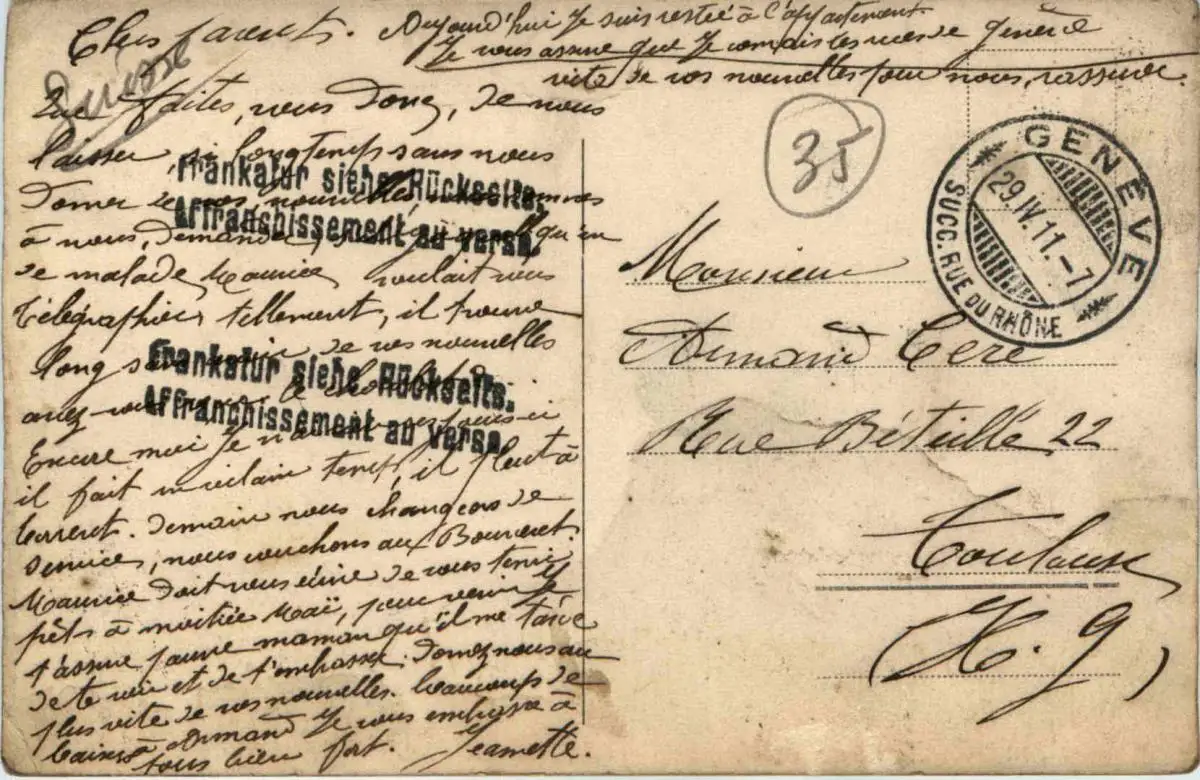 Chers parents. Aujourd'hui Je suis restée à l'appartement
Je vous assure que Je connais les rues de genève
vite de vos nouvelles pour nous rassurer.
Suisse
Que faites, vous Donc, de nous
laisser si longtemps sans nous
Donner de vos nouvelles
à nous, demander
de malade Maurice voulait vous
Télégraphier tellement, il trouve
long sans de vos nouvelles
avez-vous
Encore moi Je
il fait un vilain temps, il pleut à
torrent. demain nous changeons de
service, nous couchons au
Maurice doit vous écrire de vous tenir
prêts à moitiée Maï, pour venir Je
t'assure pauvre maman qu'il me tarde
de te voir et de t'embrasser. Donnez nous au
plus vite de vos nouvelles. beaucoup de
baisers à Armand Je vous embrasse à
tous bien fort. Jeannette.
Frankatur siehe Rückseite.
Affranchissement au verso.
Frankatur siehe Rückseite.
Affranchissement au verso.
35
GENÈVE
29.IV.11.-7
SUCC. RUE DU RHÔNE
Monsieur
Armand Cere
Rue Béteille 22
Toulouse
(H. g)